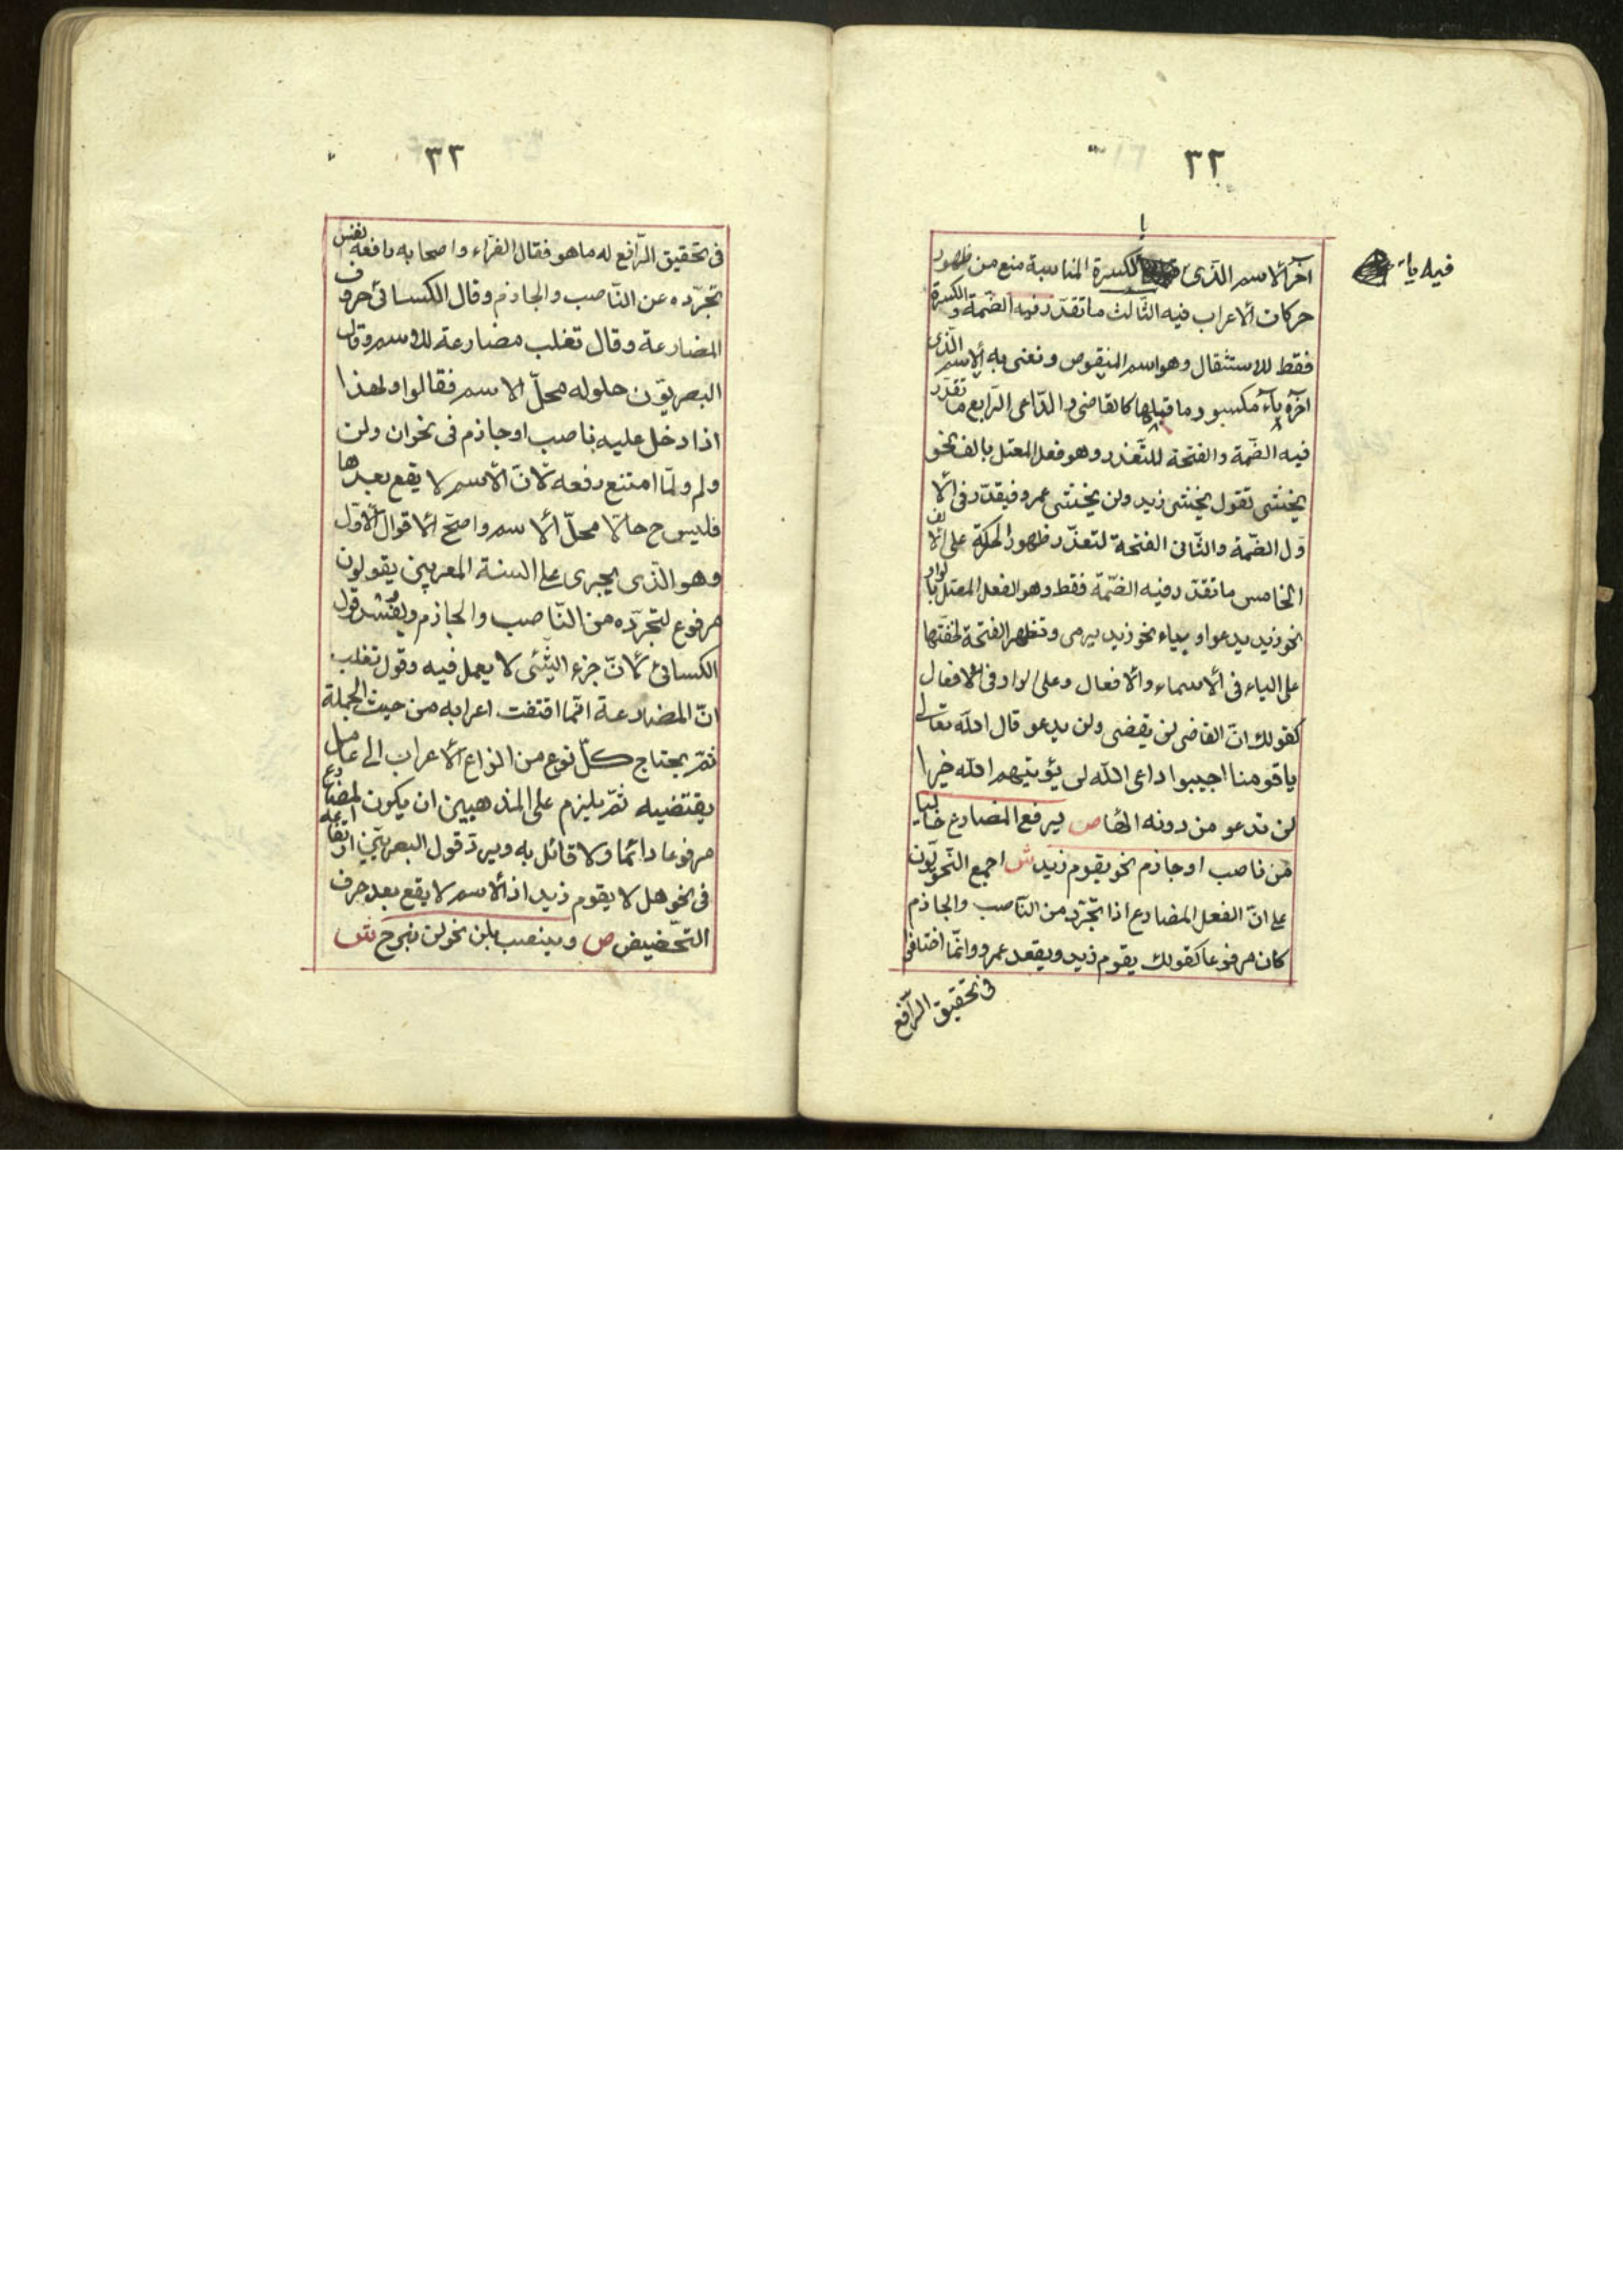 ٣٢
آخر الاسم الذى بالكسرة المناسبة منع من ظهور
فيه ياء
حركات الاعراب فيه الثّالث ما تقدّر فيه الضّمة والكسرة
فقط للاستثقال وهو اسم المنقوص ونعنى به الاسم الّذى
آخره ياء مكسور ما قبلها كالقاضى والدّاعى الرّابع ما تقدّر
فيه الضّمة والفتحة للتّعذر وهو فعل المعتل بالف نحو
يخشى تقول يخشى زيد ولن يخشى عمرو فيقدّر فى الا
وّل الضّمة والثّانى الفتحة لتعذّر ظهور الحركة على الالف
الخامس ما تقدّر فيه الضّمّة فقط وهو الفعل المعتل بالواو
نحو زيد يدعوا وبياء نحو زيد يرمى وتظهر الفتحة لخفّتها
على الياء فى الاسماء والافعال وعلى الواو فى الافعال
كقولك انّ القاضى لن يقضى ولن يدعو قال الله تعالى
يا قومنا اجيبوا داعى الله لن يؤتيهم الله خيرا
لن ندعو من دونه الها ص يرفع المضارع خاليا
من ناصب او جازم نحو يقوم زيد ش اجمع النّحويّون
على انّ الفعل المضارع اذا تجّرد من النّاصب والجازم
كان مرفوعا كقولك يقوم زيد ويقعد عمرو وانّما اختلفوا
فى تحقيق الرّافع
٣٣
فى تحقيق الرّافع له ما هو فقال الفرّاء واصحابه رافعه نفس
تجرّده عن النّاصب والجازم وقال الكسائى حروف
المضارعة وقال تغلب مضارعة للاسم وقال
البصريّون حلوله محلّ الاسم فقالوا ولهذا
اذا دخل عليه ناصب او جازم فى نحو ان ولن
ولم ولمّا امتنع رفعه لانّ الاسم لا يقع بعدها
فليس ح حالّا محلّ الاسم واصحّ الاقوال الاوّل
وهو الّذى يجرى على السنة المعربين يقولون
مرفوع لتجرّده من النّاصب والجازم ويفسد قول
الكسائى لانّ جزء الشّئى لا يعمل فيه وقول تغلب
انّ المضارعة انّما اقتفت اعرابه من حيث الجملة
ثمّ يحتاج كلّ نوع من انواع الاعراب الى عامل
يقتضيه ثمّ يلزم على المذهبين ان يكون المضارع
مرفوعا دائما ولا قائل به ويردّ قول البصريّين ارتفاعه
فى نحو هل لا يقوم زيد اذ الاسم لا يقع بعد حرف
التّحضيض ص وينصب بلن نحو لن نبرح ش